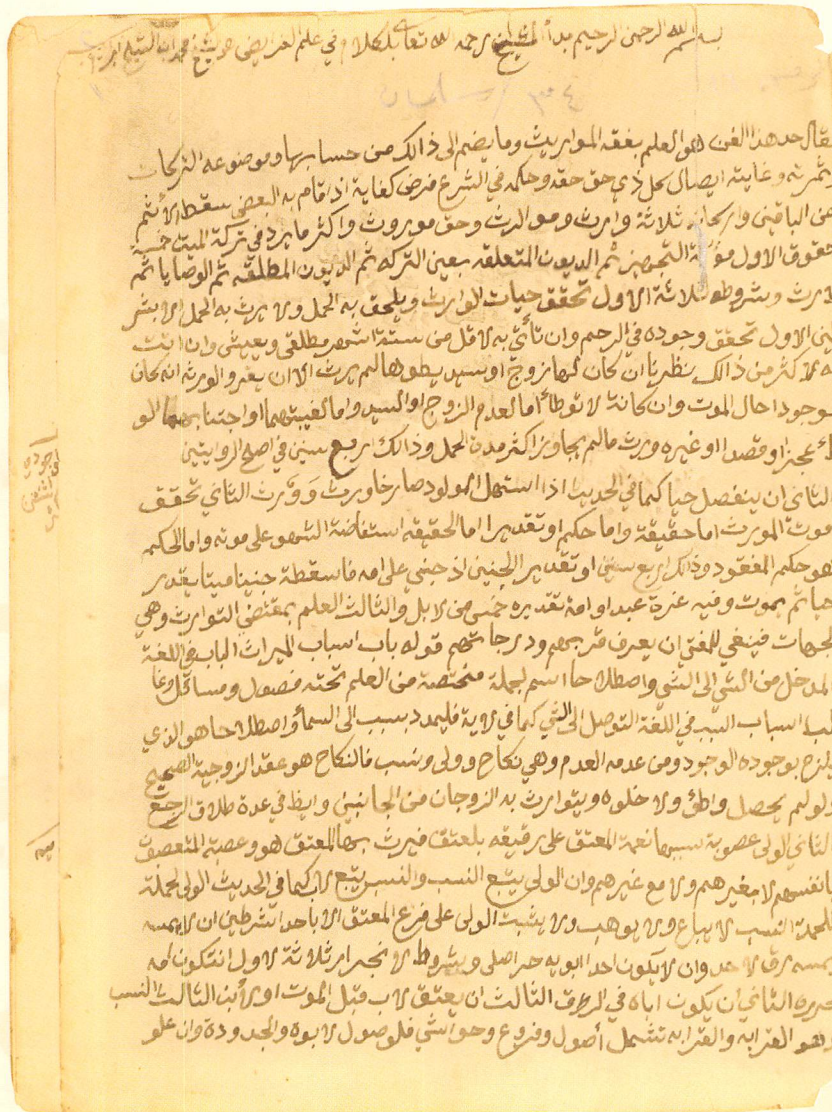 بسم الله الرحمن الرحيم بدأ الشيخ رحمه الله تعا بلكلام في علم الفرايض
فقال حد هذا الفن هو العلم بفقه المواريث وما يضم الى ذالك من حسابها وموضوعه التركات
وثمرته وغايته ايصال كل ذي حق حقه وحكمه في الشرع فرض كفاية اذا قام به البعض سقط الاثم
عن الباقين واركانه ثلاثة وارث ومورث وحق موروث واكثر ما يرد في تركة الميت خمسة
حقوق الاول مؤنة التجهيز ثم الديون المتعلقه بعين التركه ثم الديون المطلقه ثم الوصايا ثم
الارث وشروطه ثلاثة الاول تحقق حيات الوارث ويلحق به الحمل ولا يرث به الحمل الا بشر
طين الاول تحقق وجوده في الرحم وان تأتي به لاقل من ستة اشهر مطلقى ويعيش وان اتت
به لاكثر من ذالك نظرنا ان كان لها زوج او سيد يطوها لم يرث الا ان يقر الورثه انه كان
موجودا حال الموت وان كانة لا توطأ اما لعدم الزوج او السيد واما لغيبتهما او اجتنابهما الو
طئ عجزا او قصدا او غيره ورث مالم يجاوز اكثر مدة الحمل وذالك اربع سنين في اصح الروايتين
الثاني ان ينفصل حيا كما في الحديث اذا استهل المولود صارخا ورث وورث الثاني تحقق
موت المورث اما حقيقة واما حكم او تقديرا اما الحقيقه استفاضة الشهو على موته واما الحكم
فهو حكم المفقود وذالك اربع سنين او تقدير الجنين اذ جني على امه فاسقطة جنينا ميتا يقدر
حيا ثم يموت وفيه غرة عبد او امة تقديره خمس من لابل والثالث العلم بمقتضي التوارث وهي
الجهات فينغي للمفتي ان يعرف قربهم ودرجاتهم قوله باب اسباب الميراث الباب في اللغة
المدخل من الشي الى الشي واصطلاحا اسم لجملة مختصة من العلم تحته فصول ومسائل غا
لبا اسباب السبب في اللغة التوصل الى الشي كما في لاية فليمدد بسبب الى السمأ واصطلاحا هو الذي
يلزم بوجوده الوجود ومن عدمه العدم وهي نكاح وولى ونسب فالنكاح هو عقد الزوجية الصحيح
ولو لم يحصل واطئ ولا خلوه ويتوارث به الزوجان من الجانبين وايظ في عدة طلاق الرجعي
الثاني الولى عصوبة سببها نعمة المعتق على رقيقه بلعتق فيرث بها المعتق هو وعصبة المتعصبون
بانفسهم لا بغيرهم ولا مع غيرهم وان الولى يتبع النسب والنسب يتبع لاب كما في الحديث الولى لحملة
كلحمة النسب لا يباع ولا يوهب ولا يثبت الولى على فرع المعتق الا باحد الشرطين ان لا يمسه
يمسه رق لاحد وان لا يكون احد ابويه حر اصلي وشروط لانجرار ثلاثة لاول ان تكون امه
حرره الثاني ان يكون اباه في الرق الثالث ان يعتق لاب قبل الموت او لابن الثالث النسب
وهو القرابه والقرابه تشمل أصول وفروع وحواشي فلوصول لابوه والجدوده وان علو